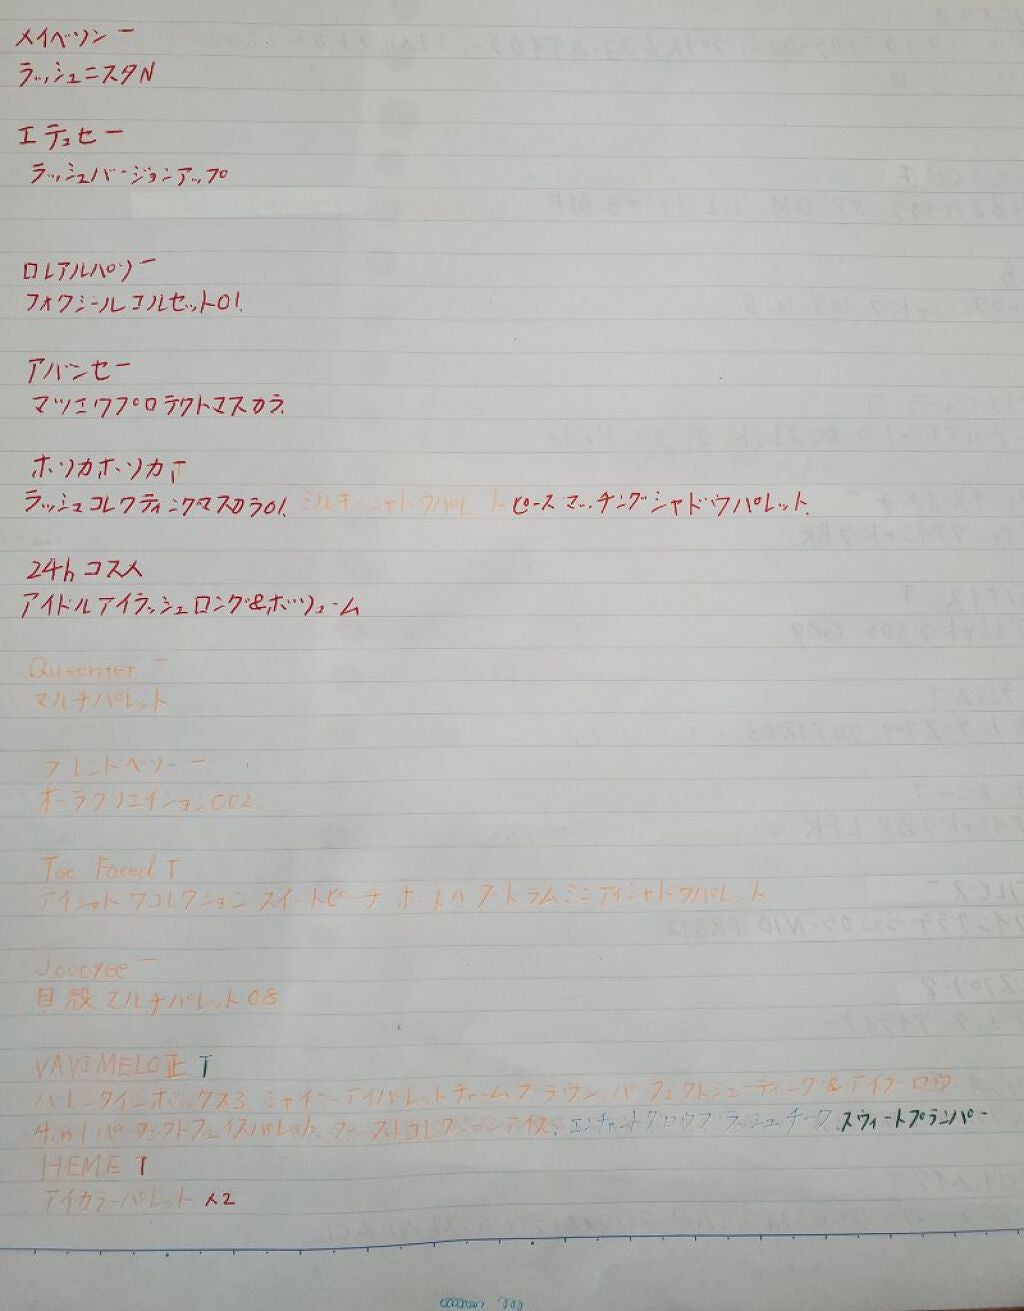 メイベリン 一
ラッシュニスタN
エテュセ 一
ラッシュバージョンアップ
ロレアルパリ 一
フォクシールコルセット01.
アバンセ 一
マツエクプロテクトマスカラ.
ホリカホリカ T
ラッシュコレクティングマスカラ01. ミルキーシャドウパレット ピースマッチングシャドウパレット.
24h コスメ
アイドルアイラッシュロング&ボリューム
Queenter 一
マルチパレット
オーラクリエイション002
Too Faced T
アイシャドウコレクション スイートピーチ ホットバタードラムミニアイシャドウパレット
Joocyee 一
貝殻マルチパレット08
VAVIMELO 正 T
バレンタインボックス3 シャイニーアイパレットチャームブラウン. パーフェクトシューティング&アイブロウ
パーフェクトフェイスパレット スウィートプランパー
HEME T
アイカラーパレット 人2